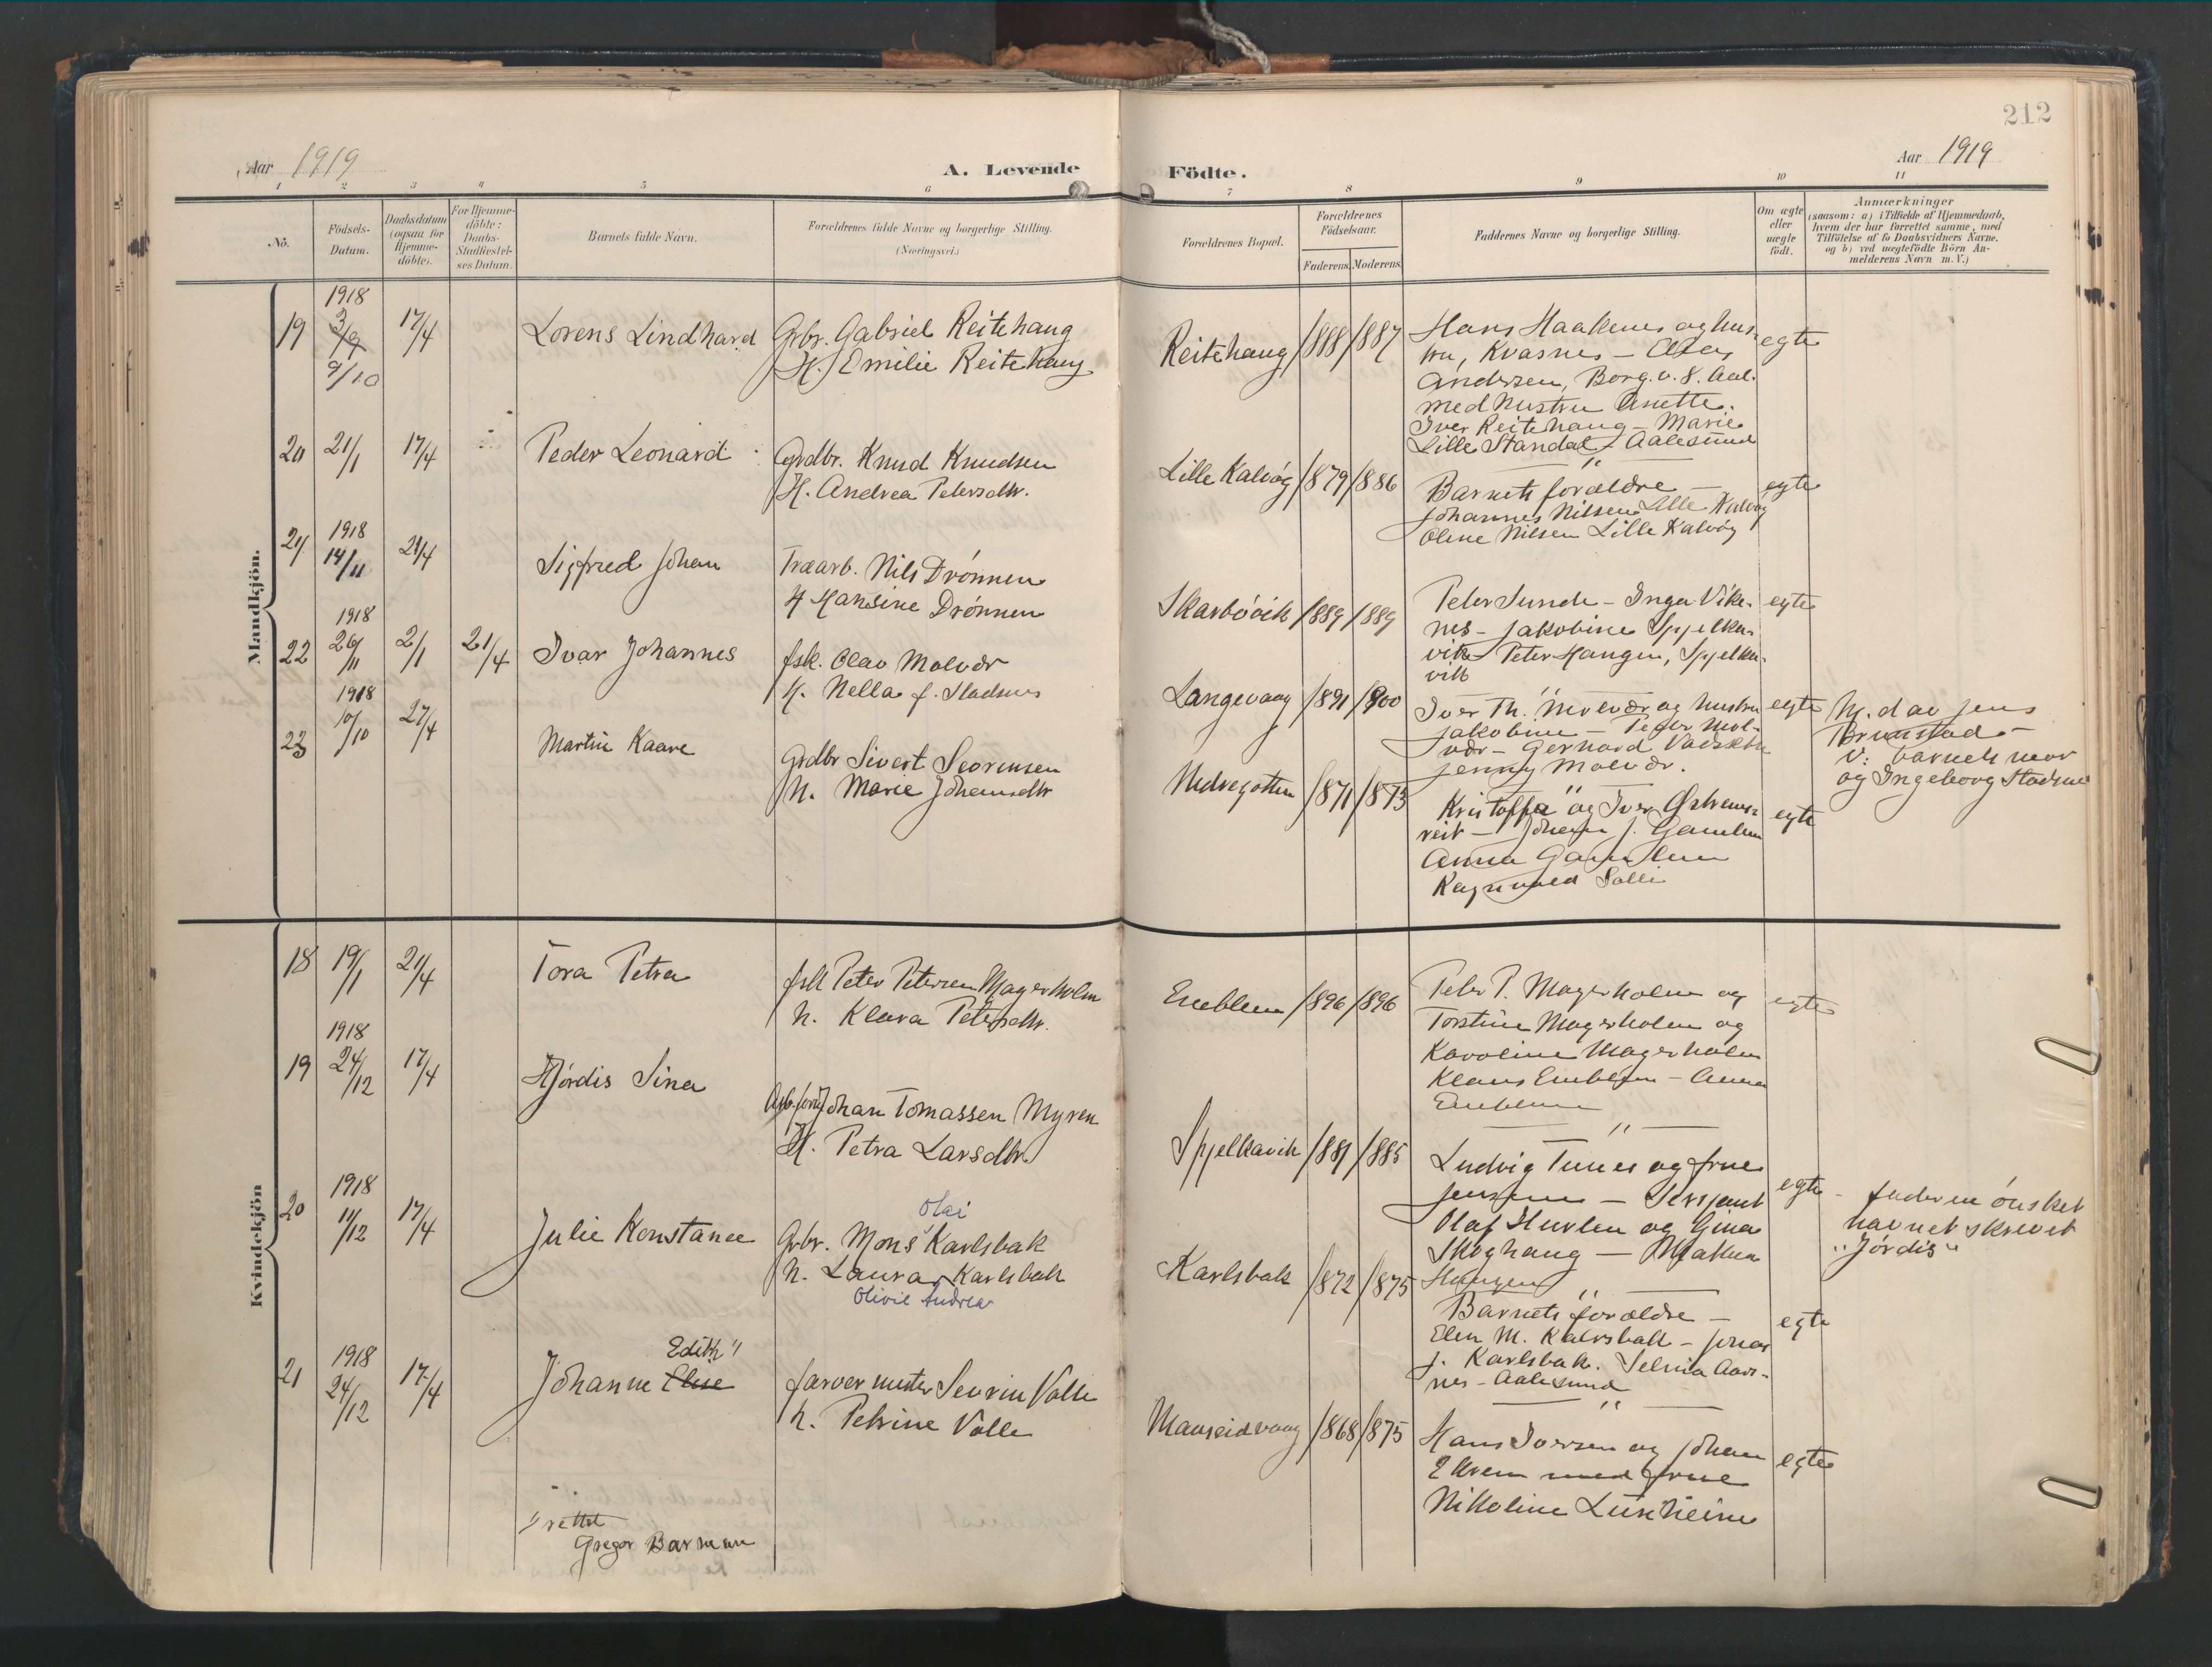 212
Aar 1919
A. Levende
Födte.
Aar 1919
1 2 3 4 5 6 7 8 9 10 11
No.
Födsels-
Datum.
Daabsdatum
(ogsaa for
Hjemme-
döbte).
For Hjemme-
döbte:
Daabs-
Stadfæstel-
ses Datum.
Barnets fulde Navn.
Forældrenes fulde Navne og borgerlige Stilling.
(Næringsvei.)
Forældrenes Bopæl.
Forældrenes
Födselsaar.
Faderens. Moderens.
Faddernes Navne og borgerlige Stilling.
Om ægte
eller
uægte
födt.
Anmærkninger
(saasom: a) i Tilfælde af Hjemmedaab,
hvem der har forrettet samme, med
Tilföielse af to Daabsvidners Navne.
og b) ved uægtefödte Börn An-
melderens Navn m. V.)
Mandkjön.
19
1918
3/9
9/10
17/4
Lorens Lindhard
Grbr. Gabriel Reitehaug
H. Emilie Reitehaug
Reitehaug 1888 1887
Hans Haakenes og hus-
tru, Kvasnes -
Andersen, Borg. v. 8. Aal.
med hustru Anette.
Iver Reitehaug - Marie
Lille Standal - Aalesund
egte
20
21/1
17/4
Peder Leonard
Grdbr. Knud Knudsen
H. Andrea Petersdtr.
Lille Kalvög 1879 1886
Barnets forældre -
Johannes Nilsen Lille Kalvög
Oline Nilsen Lille Kalvög
egte
21
1918
14/11
21/4
Sigfred Johan
Træarb. Nils Drönnen
H Hansine Drönnen
Skarbövik 1889 1889
Peter Sunde - Inga Vike-
nes - Jakobine Spjelka-
vik - Peter Haugen, Spjelka-
vik
egte
22
1918
26/11
2/1
21/4
Ivar Johannes
fsk. Olav Molvær
H. Nella f. Stadsnes
Langevaag 1891 1900
Iver Th. Molvær og hustru
Jakobine - Peder Mol-
vær - Gerhard
Jenny Molvær.
egte
H. d av Jens
Brunstad -
V: barnets mor
og Ingeborg Stadsnes
23
1918
10/10
27/4
Martin Kaare
Grdbr Sivert Severensen
H. Marie Johansdtr
Nedregotten 1871 1873
Kristoffa og Iver Østrems-
reit - Johan J. Gamlem
Anna Gamlem
Ragnvald Solli
egte
Kvindekjön
18
19/1
21/4
Tora Petra
fsk Peter Petersen Magerholm
H. Klara Petersdtr.
Emblem 1896 1896
Peter P. Magerholm og
Torstine Magerholm og
Karoline Magerholm
Klaus Emblem - Anna
Emblem
egte
19
1918
24/12
17/4
Hjördis Sina
Johan Tomassen Myren
H. Petra Larsdtr.
Spjelkavik 1881 1885
Ludvig Tunes og frue
Jensine - Sersjant
Olaf Hurlen og Gina
Skoghaug -
Haugen
egte
faderen önsket
navnet skrevet
"Jördis"
20
1918
11/12
17/4
Julie Konstance
Olai
Grbr. Mons Karlsbak
H. Laura Karlsbak
Olivie Andrea
Karlsbak 1872 1875
Barnets forældre -
Elen M. Kalvsbak - Jonas
J. Karlsbak. Selma Aars-
nes - Aalesund
egte
21
1918
24/12
17/4
Edith 1)
Johanne Elise
farvermester Sevrin Valle
H. Petrine Valle
Mauseidvaag 1868 1875
Hans Iversen og Johan
Ekrem med frue
Nikoline Lüsheim
egte
1) rettet
Gregor Barman